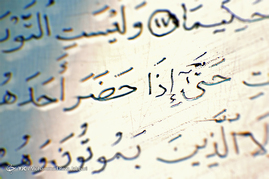 حَكِيمًا ١٧ وَلَيْسَتِ التَّوْ
ت حَتَّىٰ إِذَا حَضَرَ أَحَدَهُ
لَا الَّذِينَ يَمُوتُونَ وَهُ